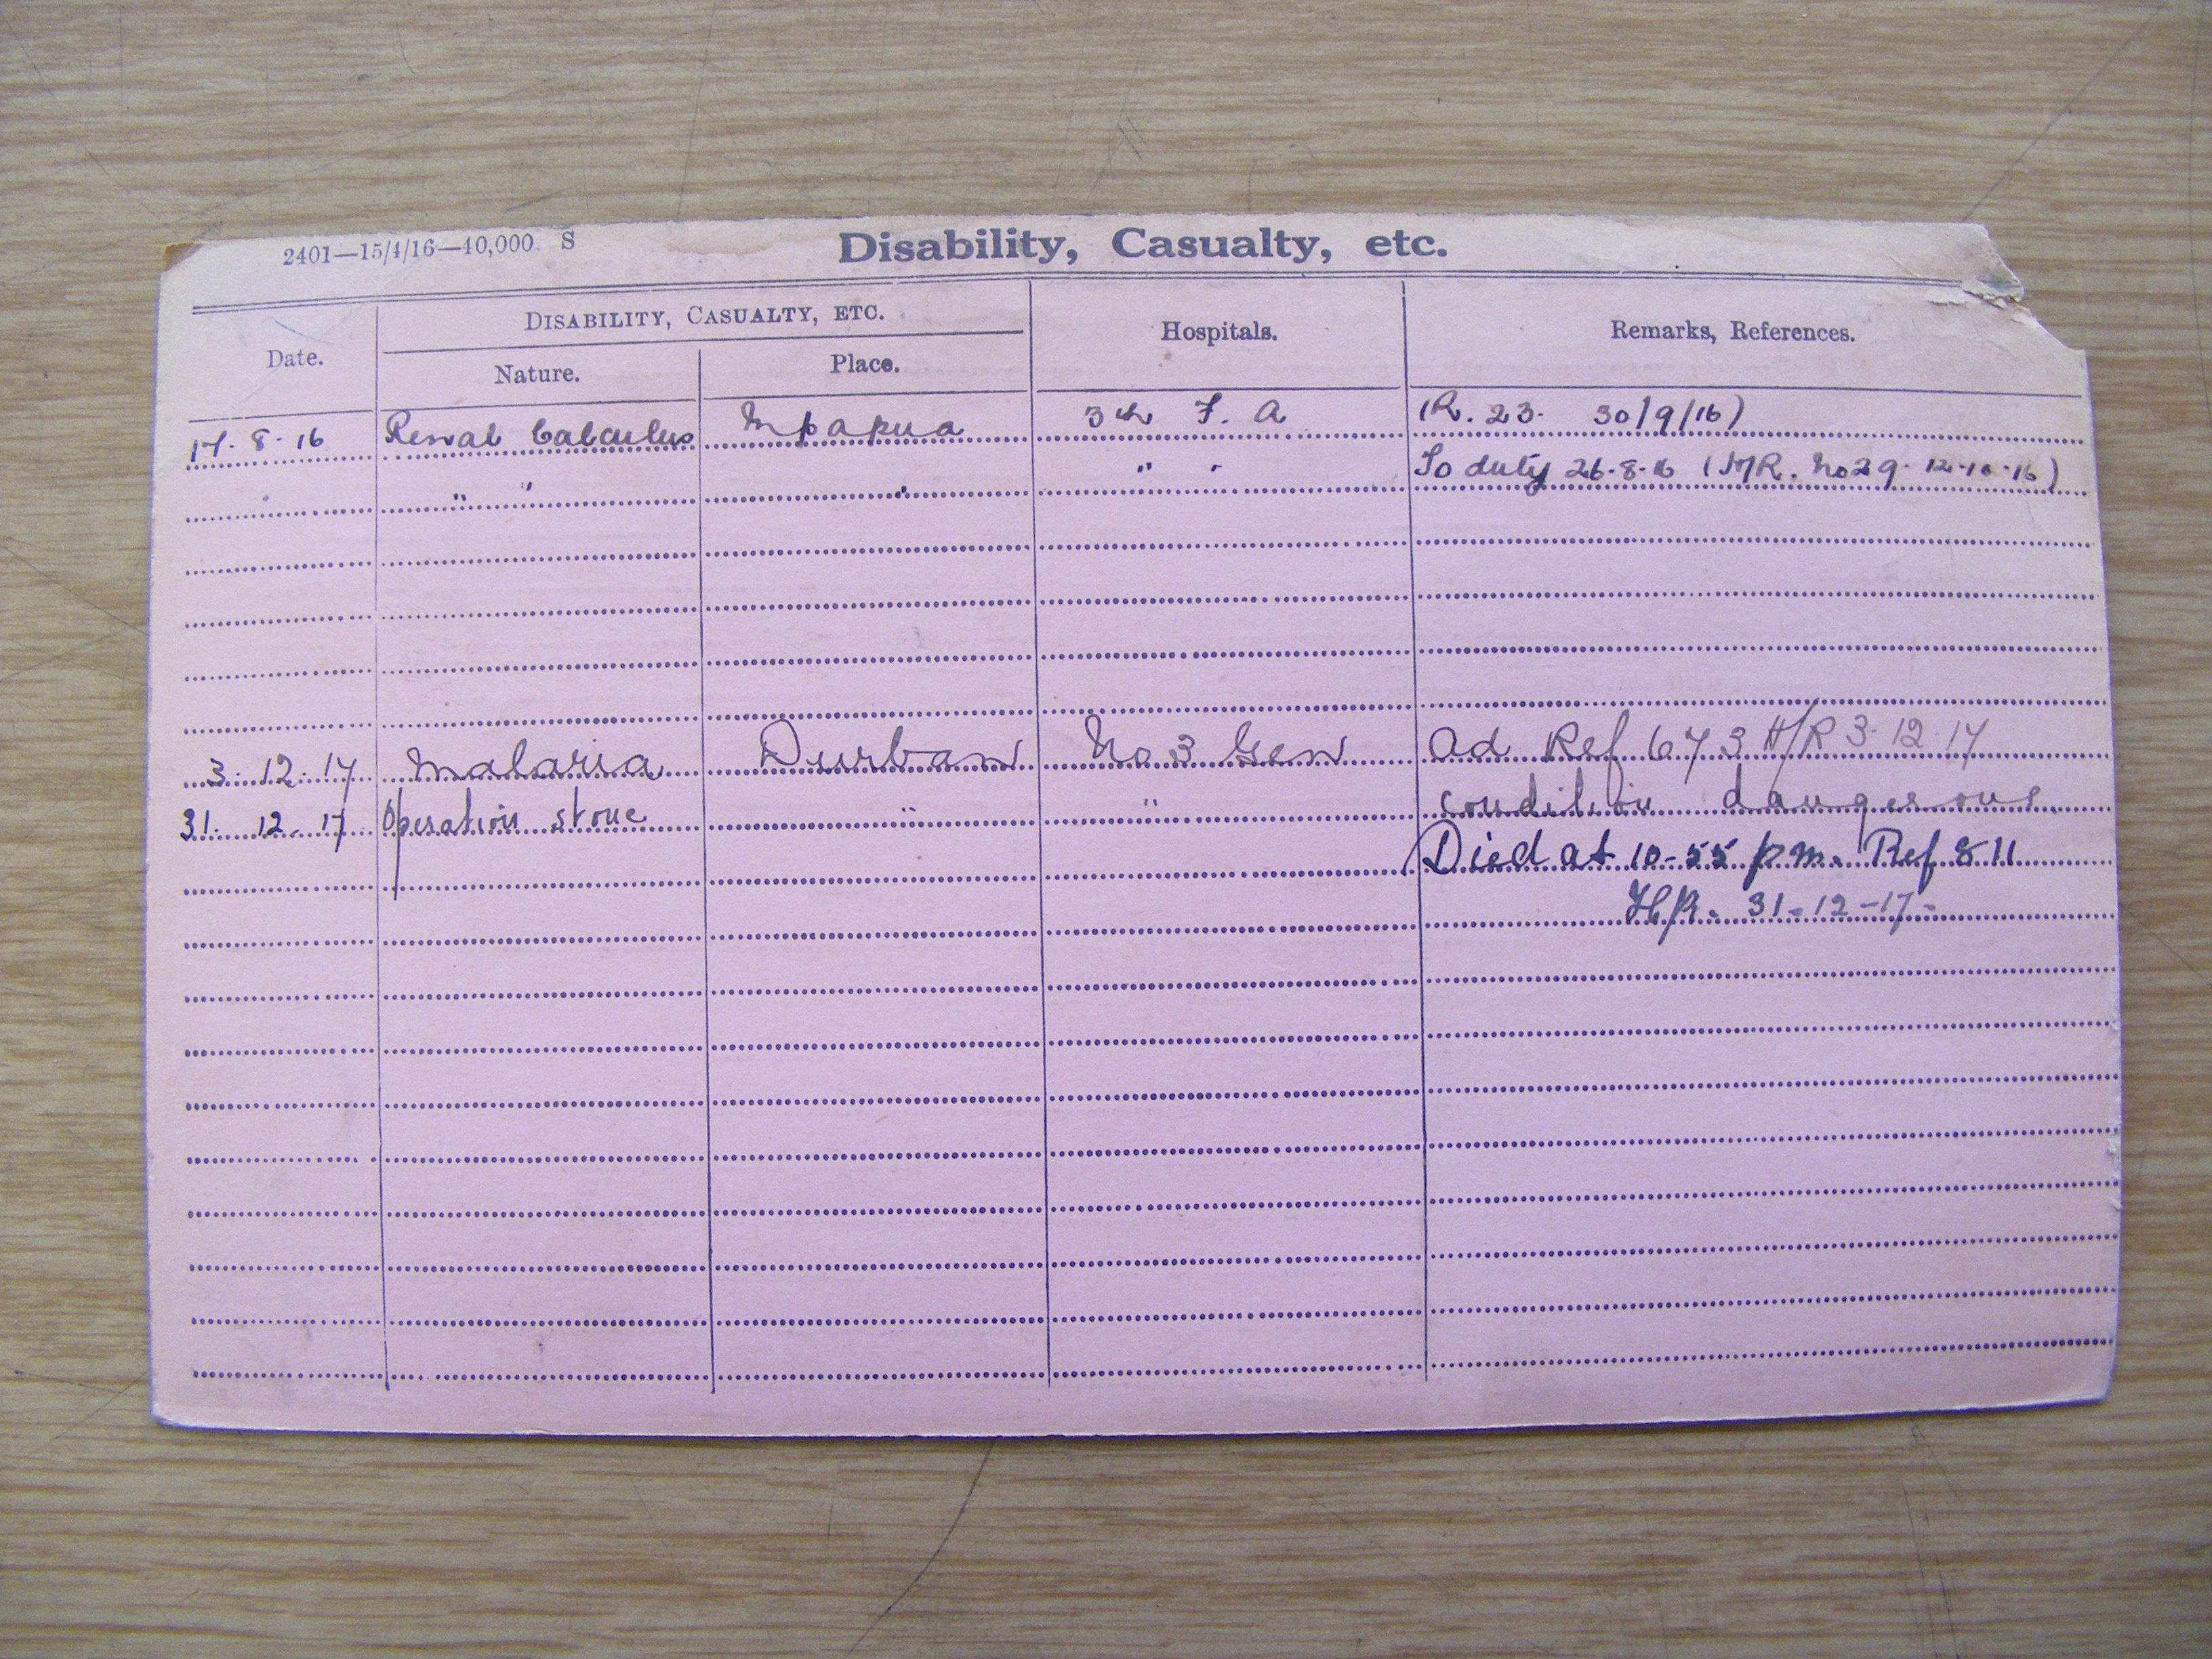 2401—15/4/16—40,000. S
Disability, Casualty, etc.
Date. DISABILITY, CASUALTY, ETC. Hospitals. Remarks, References.
Nature. Place.
17.8.16 Renal Calculus Mpapua 3rd F. A (R. 23. 30/9/16)
" " " " " To duty 26.8.16 (HR. No 29. 12.10.16)
3.12.17 Malaria Durban No 3 Gen Ad Ref 673 H/R 3.12.17
31.12.17 Operation stone " " condition dangerous
Died at 10-55 p.m. Ref 811
H/R. 31-12-17-